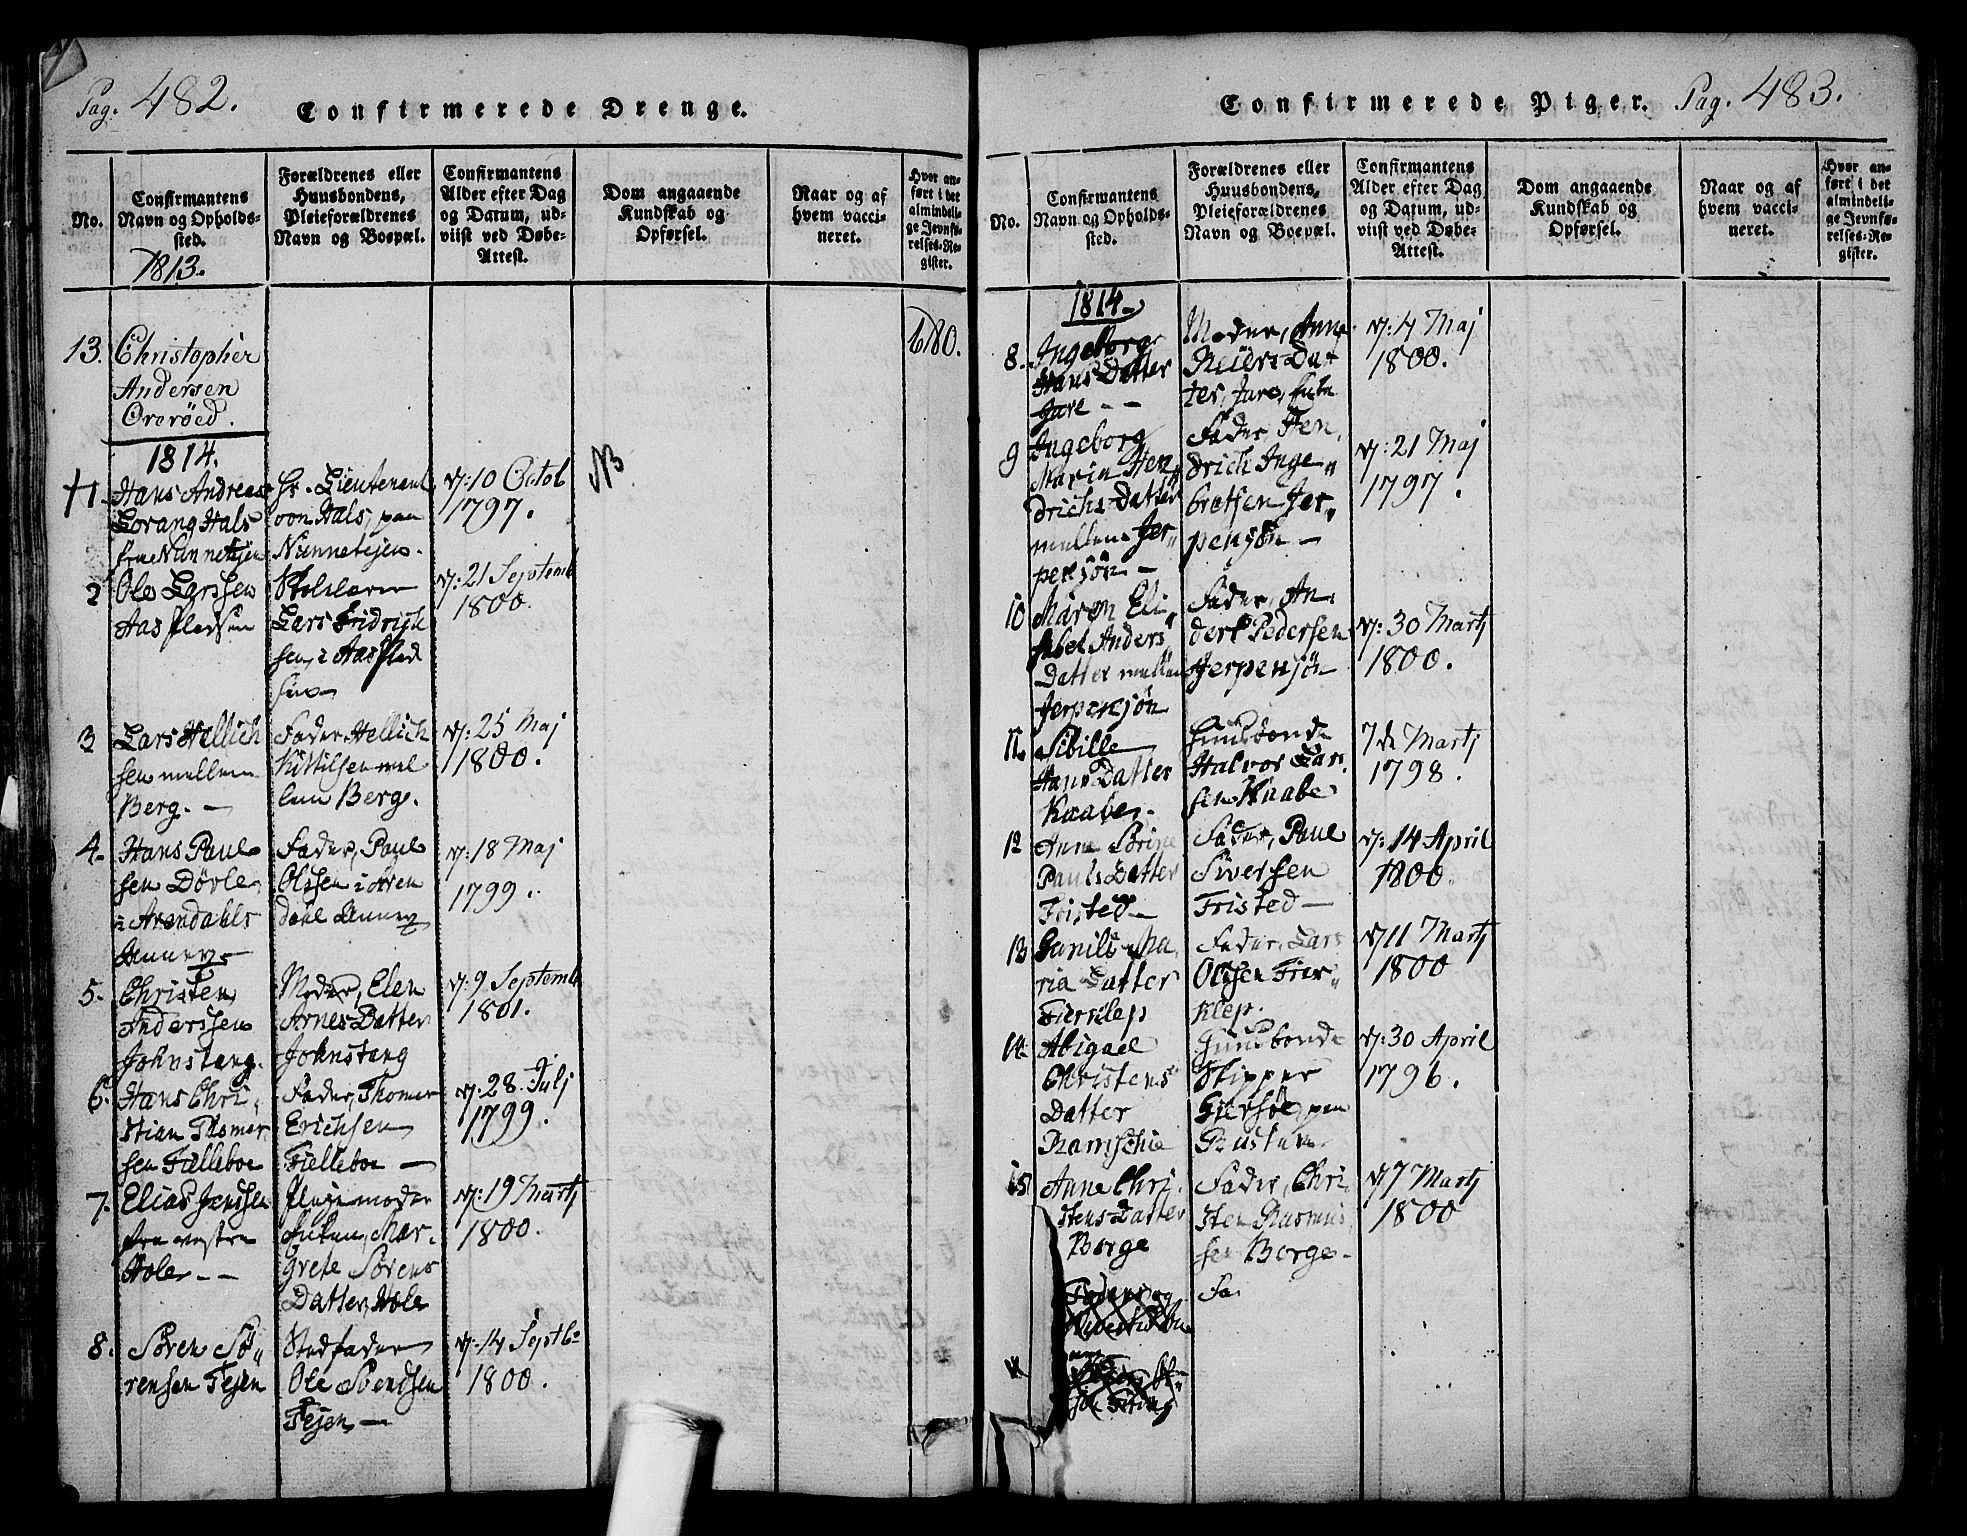 Pag. 482.
Confirmerede Drenge.
No.
Confirmantens
Navn og Opholds-
sted.
Forældrenes eller
Huusbondens,
Pleieforældrenes
Navn og Boepæl.
Confirmantens
Alder efter Dag
og Datum, ud-
viist ved Døbe-
Attest.
Dom angaaende
Kundskab og
Opførsel.
Naar og af
hvem vacci-
neret.
Hvor an-
ført i det
almindeli-
ge Jevnfø-
relses-Re-
gister.
1813.
13. Christopher
Andersen
Oreröed.
680.
1814.
1. Hans Andreas
Lorang Hals
fra Nunnetejen
Hr. Lieutenant
von Hals, paa
Nunnetejen.
7: 10 Octob
1797.
NB
2 Ole Larssen
Aas Pladsen
Lars Fridrich
sen, i Aas Plad
sen
7: 21 Septemb
1800.
3 Lars Hellich
sen mellem
Berg. —
Fader Hellich
Kittilsen mel
lem Berg.
7: 25 Maj
1800.
4. Hans Paul
sen Dövle,
i Arendahls
Annex
Fader, Paul
Olssen i Aren
dahl Annex
7: 18 Maj
1799.
5. Christen
Anderssen
Johnstang.
Moder, Elen
Arnes Datter
Johnstang
7: 9 Septemb
1801.
6. Hans Chri„
stian Thomas
sen Fielleboe
Fader, Thomas
Erichsen
Fielleboe —
7: 28. Julj
1799.
7. Elias Jenssen
fra vestre
Hole — —
Plejemoder
Enken, Mar-
grete Sörens
Datter, Hole
7: 19 Martj
1800.
8. Sören Sö„
rensen Tejen
Stedfader
Ole Svendsen
Tejen —
7: 14 Septbr
1800.
Confirmerede Piger.
Pag. 483.
No.
Confirmantens
Navn og Opholds-
sted.
Forældrenes eller
Huusbondens,
Pleieforældrenes
Navn og Boepæl.
Confirmantens
Alder efter Dag
og Datum, ud-
viist ved Døbe-
Attest.
Dom angaaende
Kundskab og
Opførsel.
Naar og af
hvem vacci-
neret.
Hvor an-
ført i det
almindeli-
ge Jevnfø-
relses-Re-
gister.
1814
8. Ingeborg
Hans Datter
Jare — —
Moder, Anne
Reiers Dat
ter, Jare, Enke
7: 4 Maj
1800.
9 Ingeborg
Maria Hen„
drichs Datter
mellem Jer„
pensjön —
Fader, Hen
drich Inge„
bretsen Jer„
pensjön —
7: 21 Maj
1797.
10 Maren Eli„
sabet Anders
Datter mellem
Jerpensjön
Fader, An
ders Pedersen
Jerpensjön
7: 30 Martj
1800.
11. Sibille
Hans Datter
Kaabe.
Huusbonde
Halvor Lar
sen Kaabe
7de Martj
1798.
12 Anne
Pauls Datter
Fristed —
Fader, Paul
Siversen
Fristed —
7: 14 April
1800.
13 Gunild Ma
ria Datter
Fierklep
Fader, Lars
Olssen Fier„
klep.
7 11 Martj
1800
14. Abigael
Christens
Datter
Ramschie
Huusbonde
Skipper
Giersöe, paa
Rusten
7: 30 April
1796.
15 Anne Chri„
stens Datter
Borge
Fader, Chri„
sten Rasmus
sen Borge.
7 7 Martj
1800
Fa